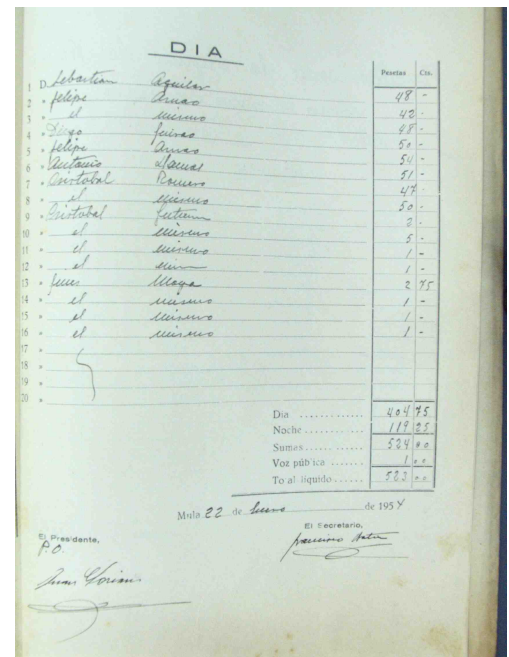 DIA
Pesetas Cts.
1 D. Sebastian Aguilar 48 -
2 » felipe 42 -
3 » el mismo 48 -
4 » Diego 50 -
5 » felipe 54 -
6 » Antonio Llamas 51 -
7 » Cristobal Romero 47
8 » el mismo 50 -
9 » Cristobal 2 -
10 » el mismo 5 -
11 » el mismo 1 -
12 » el 1 -
13 » Juan Moya 2 75
14 » el mismo 1 -
15 » el mismo 1 -
16 » el mismo 1 -
17 »
18 »
19 »
20 »
Dia ............ 404 75
Noche ............ 119 25
Sumas ............ 524 00
Voz pública ....... 1 00
Total líquido ...... 523 00
Mula 22 de Enero de 1954
El Presidente,
El Secretario,
P.O.
Francisco
Juan Soriano